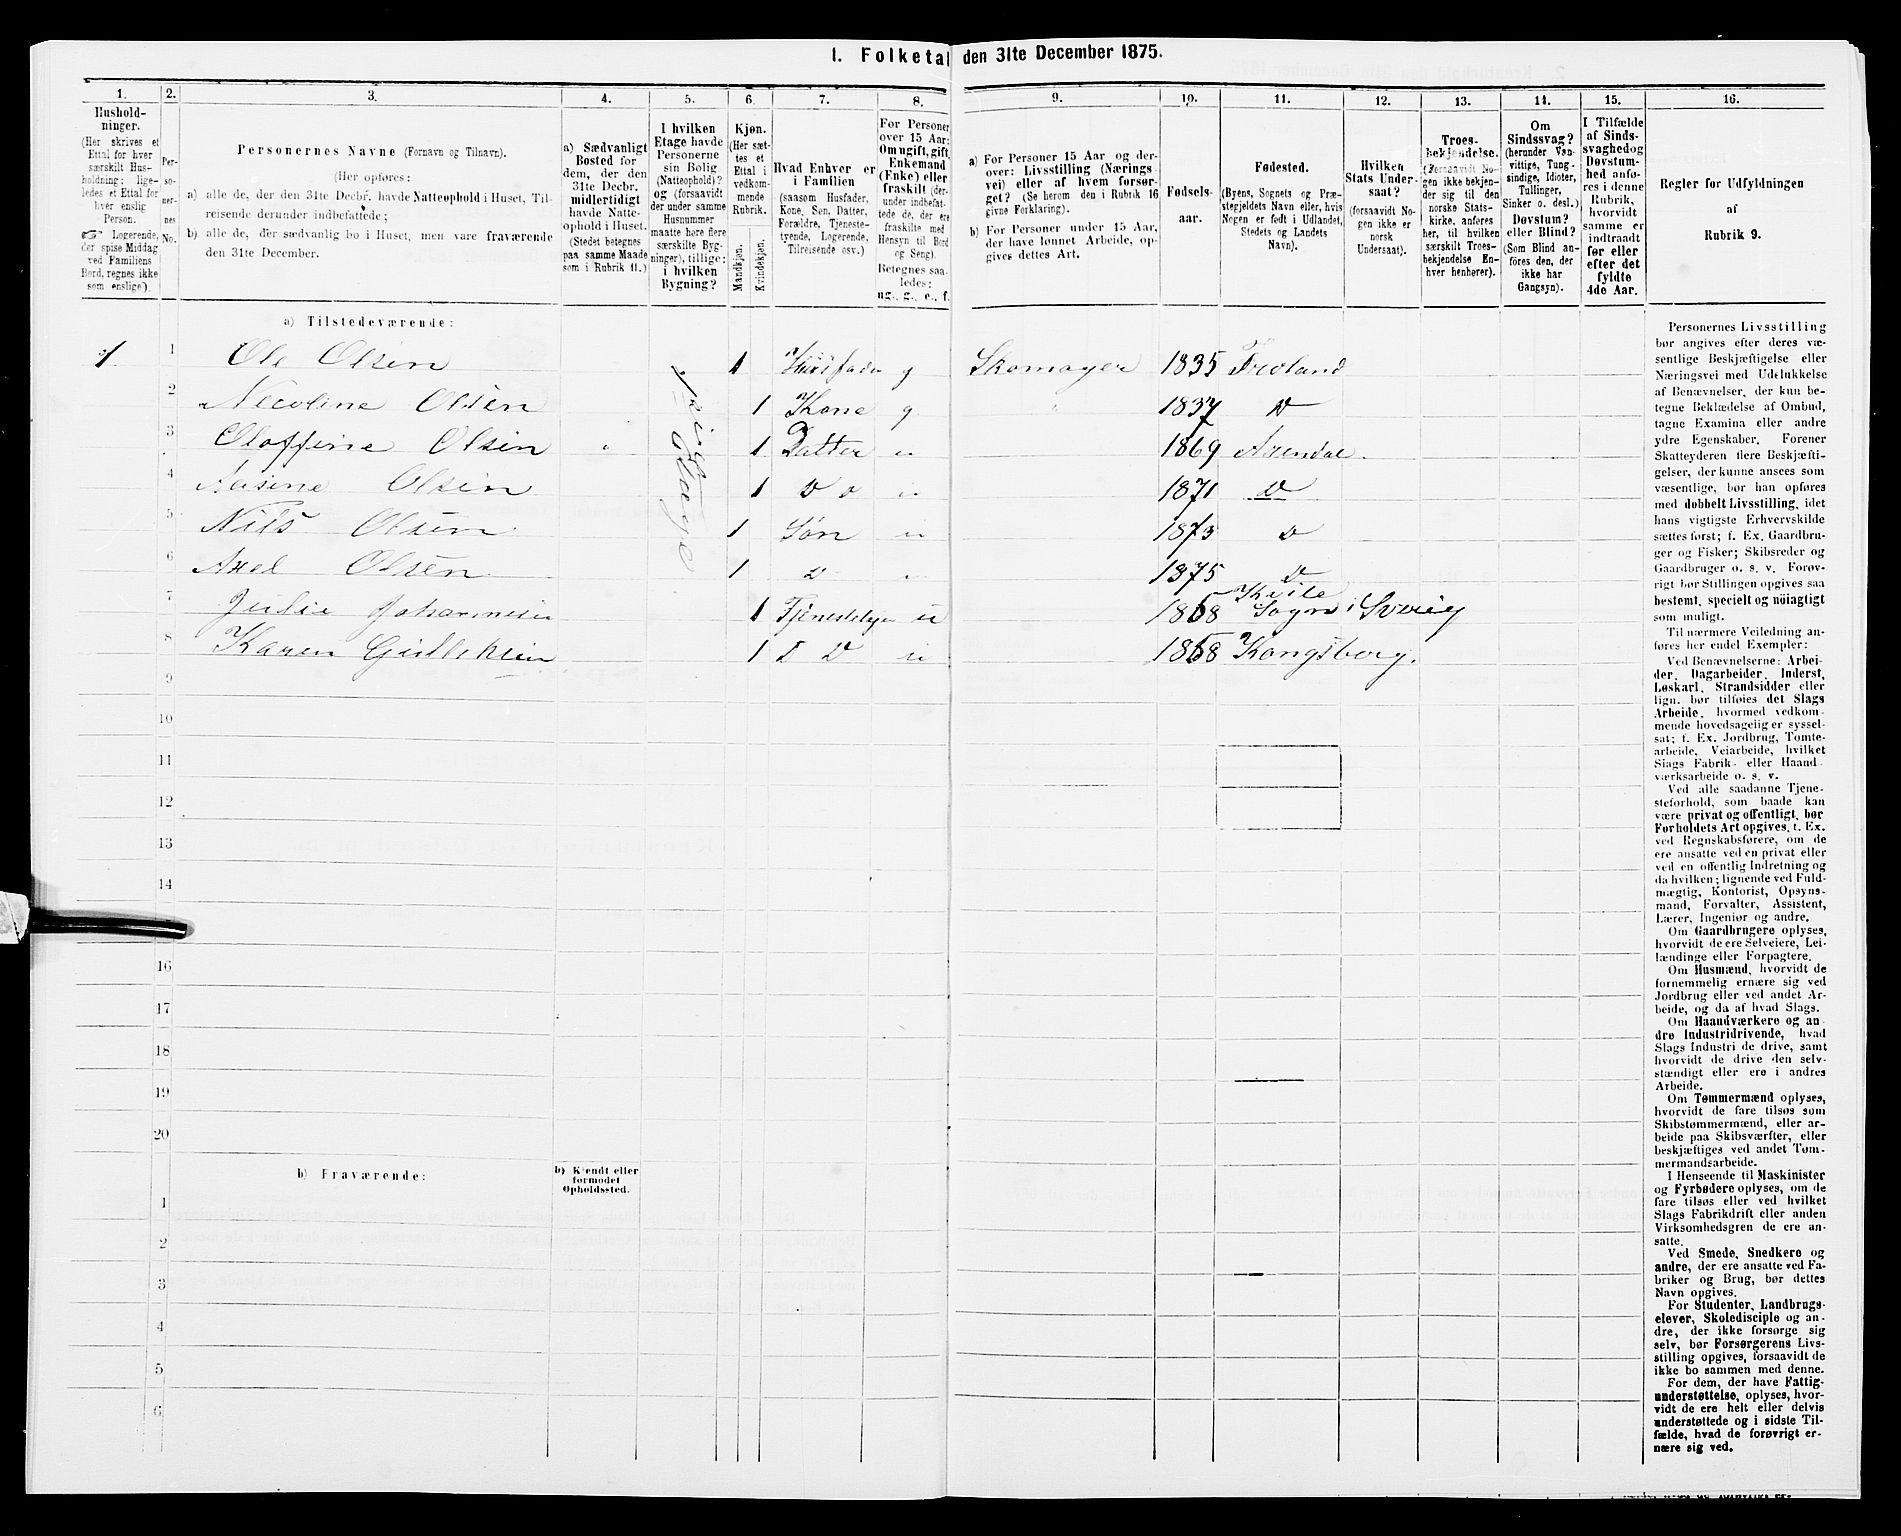 1. Folketal den 31te December 1875.
1.
Hushold-
ninger.
(Her skrives et
Ettal for hver
særskilt Hus-
holdning; lige-
ledes et Ettal for
hver enslig
Person.
☞ Logerende,
der spise Middag
ved Familiens
Bord, regnes ikke
som enslige).
2.
Per-
so-
ner-
nes
No.
3.
Personernes Navne (Fornavn og Tilnavn).
(Her opføres:
a) alle de, der den 31te Decbr. havde Natteophold i Huset, Til-
reisende derunder indbefattede;
b) alle de, der sædvanlig bo i Huset, men vare fraværende
den 31te December.
4.
a) Sædvanligt
Bosted for
dem, der den
31te Decbr.
midlertidigt
havde Natte-
ophold i Huset.
(Stedet betegnes
paa samme Maade
som i Rubrik 11.)
5.
I hvilken
Etage havde
Personerne
sin Bolig
(Natteophold)?
og (forsaavidt
der under samme
Husnummer
maatte høre flere
særskilte Byg-
ninger), tillige:
i hvilken
Bygning?
6.
Kjøn.
(Her sæt-
tes et
Ettal i
vedkom-
mende
Rubrik.
Mandkjøn.
Kvindekjøn.
7.
Hvad Enhver er
i Familien
(saasom Husfader,
Kone, Søn, Datter,
Forældre, Tjeneste-
tyende, Logerende,
Tilreisende osv.)
8.
For Personer
over 15 Aar:
Om ugift, gift,
Enkemand
(Enke) eller
fraskilt (der-
under indbefat-
tede de, der ere
fraskilte med
Hensyn til Bord
og Seng).
Betegnes saa-
ledes:
ug., g., e., f.
9.
a) For Personer 15 Aar og der-
over: Livsstilling (Nærings-
vei) eller af hvem forsør-
get? (Se herom den i Rubrik 16
givne Forklaring).
b) For Personer under 15 Aar,
der have lønnet Arbeide, op-
gives dettes Art.
10.
Fødsels-
aar.
11.
Fødested.
(Byens, Sognets og Præ-
stegjeldets Navn eller, hvis
Nogen er født i Udlandet,
Stedets og Landets
Navn).
12.
Hvilken
Stats Under-
saat?
(forsaavidt No-
gen ikke er
norsk
Undersaat).
13.
Troes-
bekjendelse.
(Forsaavidt No-
gen ikke bekjen-
der sig til den
norske Stats-
kirke, anføres
her, til hvilken
særskilt Troes-
bekjendelse En-
hver henhører).
14.
Om
Sindssvag?
(herunder Van-
vittige, Tung-
sindige, Idioter,
Tullinger,
Sinker o. desl.)
Døvstum?
eller Blind?
(Som Blind an-
føres den, der
ikke har
Gangsyn).
15.
I Tilfælde
af Sinds-
svaghed og
Døvstum-
hed anfø-
res i denne
Rubrik,
hvorvidt
samme er
indtraadt
før eller
efter det
fyldte
4de Aar.
16.
Regler for Udfyldningen
af
Rubrik 9.
a) Tilstedeværende:
1 1 Ole Olsen 1 Huusfader g Skomager 1835 Froland
2 Nicoline Olsen 1 Kone g " 1837 D
3 Oloffine Olsen " 1 Datter u 1869 Arendal
4 Aasine Olsen 1 D o u 1871 D
5 Nils Olsen 1 Søn u 1873 D
6 Axel Olsen 1 D u 1875 D
7 Julie Johannesen 1 u 1858 Kville Sogn i Sverig
8 Karen Gulleksen 1 D D u 1858 Kongsberg.
Etage
9
10
11
12
13
14
15
16
17
18
19
20
b) Fraværende:
b) Kjendt eller
formodet
Opholdssted.
1
2
3
4
5
6
Personernes Livsstilling
bør angives efter deres væ-
sentlige Beskjæftigelse eller
Næringsvei med Udelukkelse
af Benævnelser, der kun be-
tegne Beklædelse af Ombud,
tagne Examina eller andre
ydre Egenskaber. Forener
Skatteyderen flere Beskjæfti-
gelser, der kunne ansees som
væsentlige, bør han opføres
med dobbelt Livsstilling, idet
hans vigtigste Erhvervskilde
sættes først; f. Ex. Gaardbru-
ger og Fisker; Skibsreder og
Gaardbruger o. s. v. Forøv-
rigt bør Stillingen opgives saa
bestemt, specielt og nøiagtigt
som muligt.
Til nærmere Veiledning an-
føres her endel Exempler:
Ved Benævnelserne: Arbei-
der, Dagarbeider, Inderst,
Løskarl, Strandsidder eller
lign. bør tilføies det Slags
Arbeide, hvormed vedkom-
mende hovedsagelig er syssel-
sat; f. Ex. Jordbrug, Tomte-
arbeide, Veiarbeide, hvilket
Slags Fabrik- eller Haand-
værksarbeide o. s. v.
Ved alle saadanne Tjene-
steforhold, som baade kan
være privat og offentligt, bør
Forholdets Art opgives, t. Ex.
ved Regnskabsførere, om de
ere ansatte ved en privat eller
ved en offentlig Indretning og
da hvilken; lignende ved Fuld-
mægtig, Kontorist, Opsyns-
mand, Forvalter, Assistent,
Lærer, Ingeniør og andre.
Om Gaardbrugere oplyses,
hvorvidt de ere Selveiere, Lei-
lændinge eller Forpagtere.
Om Husmænd, hvorvidt de
fornemmelig ernære sig ved
Jordbrug eller ved andet Ar-
beide, og da af hvad Slags.
Om Haandværkere og an-
dre Industridrivende, hvad
Slags Industri de drive, samt
hvorvidt de drive den selv-
stændigt eller ere i andres
Arbeide.
Om Tømmermænd oplyses,
hvorvidt de fare tilsøs som
Skibstømmermænd, eller ar-
beide paa Skibsværfter, eller
beskjæftiges ved andet Tøm-
mermandsarbeide.
I Henseende til Maskinister
og Fyrbødere oplyses, om de
fare tilsøs eller ved hvilket
Slags Fabrikdrift eller anden
Virksomhedsgren de ere an-
satte.
Ved Smede, Snedkere og
andre, der ere ansatte ved Fa-
briker og Brug, bør dettes
Navn opgives.
For Studenter, Landbrugs-
elever, Skoledisciple og an-
dre, der ikke forsørge sig
selv, bør Forsørgerens Livs-
stilling opgives, forsaavidt de
ikke bo sammen med denne.
For dem, der have Fattig-
understøttelse, oplyses, hvor-
vidt de ere helt eller delvis
understøttede og i sidste Til-
fælde, hvad de forøvrigt er-
nære sig ved.